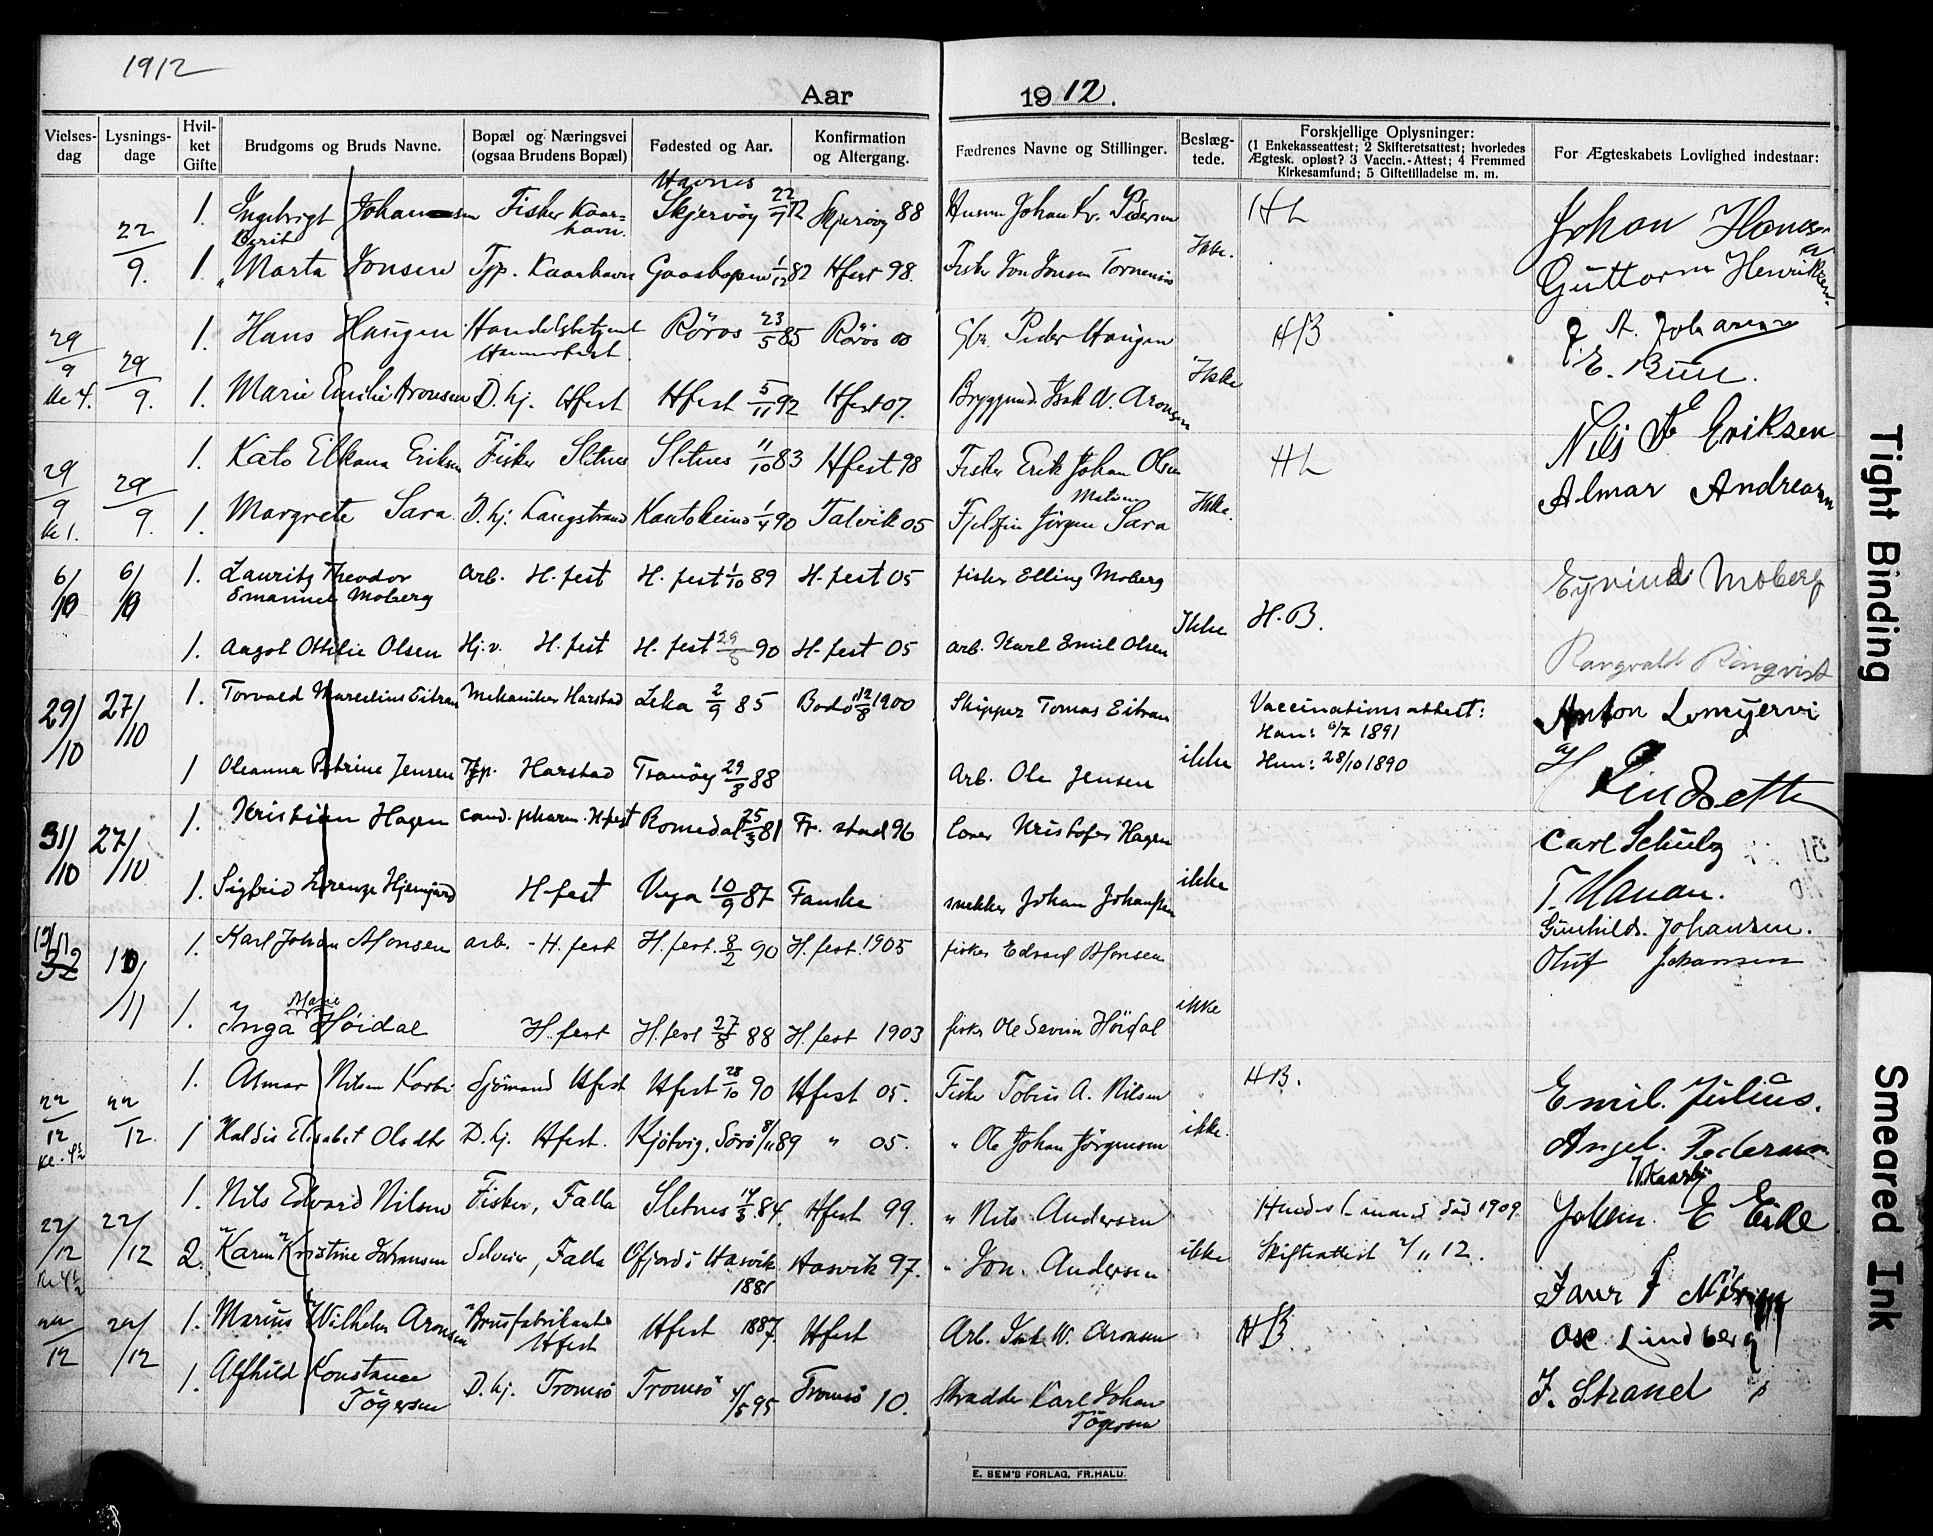 1912
Aar 1912.
Vielses-dag Lysnings-dage Hvil-ket Gifte Brudgoms og Bruds Navne. Bopæl og Næringsvei (ogsaa Brudens Bopæl) Fødested og Aar. Konfirmation og Altergang. Fædrenes Navne og Stillinger. Beslæg-tede. Forskjellige Oplysninger: (1 Enkekasseattest; 2 Skifteretsattest; hvorledes Ægtesk. opløst? 3 Vaccin.-Attest; 4 Fremmed Kirkesamfund; 5 Giftetilladelse m. m. For Ægteskabets Lovlighed indestaar:
Havnes
1. Ingebrigt Johansen Fisker Kaar=havn. Skjervöy 22/9 72 Skjervöy 88 Johan Kr. Pedersen Johan Hansen
22/9. 1. Berit Marta Jonsen Tjp. Kaarhavn 1/12 82 Hfest 98. Fisker Jon Jonsen Ikke. Guttorm Henriksen
29/9 1. Hans Haugen Handelsbetjent Hammerfest Röros 23/5 85 Röros 00 Gbr. Peder Haugen HB A. Johansen
Kl 4. 29/9. 1. Marie Emilie Aronsen D. hj. Hfest Hfest 5/11 92 Hfest 07. Isak W. Aronsen Ikke E. Buu.
29/9 1. Kato Elkana Eriksen Fisker Sletnes Sletnes 11/10 83 Hfest 98 Fisker Erik Johan Olsen Nils E Eriksen
Kl 1. 29/9. 1. Margrete Sara D. hj. Langstrand Kautokeino 1/4 90 Talvik 05 Fjelfin Jörgen Sara Ikke. Almar Andreasen
6/10 6/10 1. Lauritz Theodor Emanuel Moberg Arb. H. fest H. fest 1/10 89 H. fest 05 fisker Elling Moberg H. B. Eyvind Moberg
1. Aagot Ottilie Olsen Hj. v. H. fest H. fest 90 H. fest 05 Arb. Karl Emil Olsen Ikke Rangvald Ringvist
29/10 27/10 1. Torvald Marcelius Eitran Mekaniker Harstad Leka 2/9 85 Bodö 12/8 1900 Skipper Tomas Eitran Vaccinationsattest: Han: 6/7 1891 Anton Lomyervi
1 Oleanna Petrine Jensen Tjp. Harstad Tranöy 29/8 88 Arb. Ole Jensen ikke Hun: 28/10 1890 Lindseth
31/10 27/10 1. Kristian Hagen cand. pharm. Hfest Romedal 25/3 81 Fr. stad 96 Kristofer Hagen Carl Schulz
1. Sigfrid Lorenze Hjemgård H-fest Vega 10/9 87 Fauske snekker Johan Johansen ikke T. Hanan.
1. Karl Johan Monsen arb. - H. fest H. fest. 8/2 90 H. fest. 1905 fisker Edvard Monsen Gunhild. Johansen.
Oluf Johansen
10/11 1. Inga Marie Höidal H. fest H. fest 27/8 88 H. fest 1903 fisker Ole Severin Höidal ikke
22/12 22/12 1. Almar Nilsen Korbi Sjömand Hfest Hfest 28/10 90 Hfest 05. Fisker Tobias A. Nilsen HB. Emil. Julius.
Kl. 4½ 1 Haldis Elisabet Olsdtr D. hj. Hfest. Kjötvig, Sörö 8/11 89 " 05. " Ole Johan Jörgensen ikke. Angel. Pedersen
22/12 22/12 1. Nils Edvard Nilsen Fisker, Falla Sletnes 14/3 84. Hfest 99. " Nils Andersen Hendes 1. mand död 1909. Johan. E Eide
Kl 4½ 2. Karen Kristine Johansen Selveier, Falla Ofjord i Hasvik 1881 Hasvik 97. " Jon. Andersen ikke Skifteattest 2/11 12.
22/12 22/12 1. Marius Wilhelm Aronsen Brusfabrikant Hfest Hfest 1887. Hfest Arb. Isak W. Aronsen HB. Osc. Lindberg
1. Alfhild Konstance Tögersen D. hj. Tromsö Tromsö 4/5 95 Tromsö 10. Skrædder Karl Johan Tögersen J. Strand
E. SEM'S FORLAG, FR.HALD.
Tight Binding
Smeared Ink